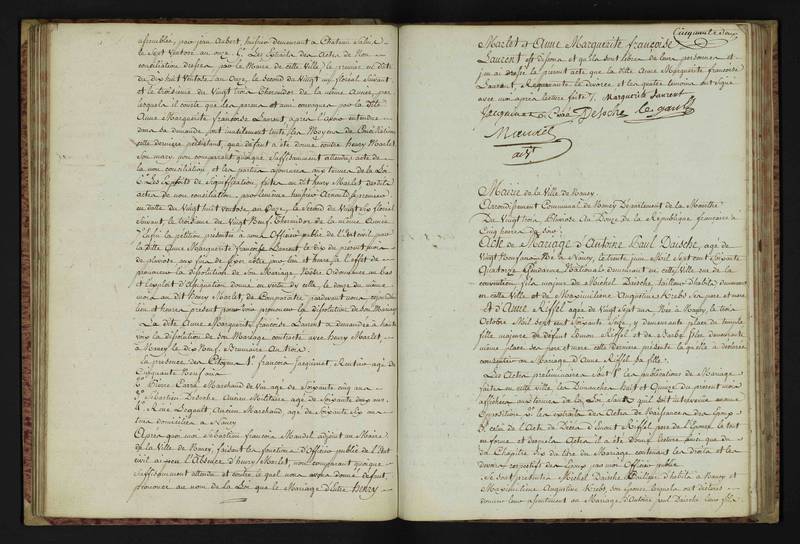 assemblée, par jean Aubert, huissier demeurant a Chateau Salins
le Sept Ventose an onze. 6° Les Extraits des Actes de Non
conciliation dressés par la Mairie de cette Ville, le premier en date
du dix huit Ventose an Onze, le Second du Vingt un floréal Suivant
et le troisieme du Vingt trois Thermidor de la même Année, par
lesquels il conste que les parens et amis convoqués par la dite
Anne Marguerite françoise Laurent, après l'avoir entendue
dans sa demande, ont inutilement tenté les Moyens de Conciliation
cette derniere persistant, que défaut a été donné contre henry Marlet
Son mary non comparant quoique Suffisamment attendu, acte de
la non conciliation, et les parties ajournées aux termes de la Loi
Les Exploits de Signification, faites au dit henry Marlet desdits
actes de non conciliation, par le même huissier, le premier
en date du Vingt huit Ventose an Onze, le Second du Vingt Six floréal
Suivant, le troisieme du Vingt Neuf Thermidor de la même Année
Enfin la petition presentée à nous Officier public de l'Etat civil par
la dite Anne Marguerite françoise Laurent le dix du present mois
de pluviose aux fins de fixer les jour, lieu et heure, à l'effet de
prononcer la dissolution de son Mariage, Notre Ordonnance au bas
et l'exploit d'assignation donné en vertu d'y celle, le douze du même
mois au dit Henry Marlet, de Comparaitre pardevant nous
lieu et heure present pour voir prononcer la dissolution de son Mariage
La dite Anne Marguerite françoise Laurent a demandé à haute
voix la dissolution de son Mariage contracté avec henry Marlet
à Nancy le dix Neuf Brumaire An trois.
En presence des Citoyens 1° françois Jacquinet, Rentier agé de
Cinquante Neuf ans
2° Pierre Carré Marchand de Vin agé de Soixante cinq ans
3° Sébastien Desoche Ancien Militaire agé de Soixante deux ans
4° Réné Legault Ancien Marchand, agé de Soixante Six ans
tous domiciliés à Nancy
Après quoi moi Sébastien françois Mandel adjoint au Maire
de la Ville de Nancy, faisant les fonctions d'Officier public de l'Etat
civil ai vu l'Absence d'henry Marlet, non comparant quoique
suffisamment attendu et contre lequel nous avons donné défaut,
prononcé au nom de la Loi que le Mariage d'Entre Henry
Cinquante deux
Marlet et Anne Marguerite françoise
Laurent est dissous et qu'ils sont libres de leur personnes et
j'en ai dressé le present acte que la dite Anne Marguerite françoise
Laurent, Requerante le divorce, et les quatre temoins ont signé
avec nous après lecture faite. Marguerite Laurent
Jacquinet P. Carré Desoche le gault
Mandel
adjt
Mairie de la Ville de Nancy.
Arrondissement Communal de Nancy Département de la Meurthe
Du Vingt trois Pluviose An Douze de la Republique française à
Cinq heures du soir.
Acte de Mariage d'Antoine Paul Daische, agé de
Vingt Neuf ans Né à Nancy, le trente juin Mil Sept cent Soixante
Quatorze Gendarme National demeurant en cette Ville rue de la
convention fils majeur de Michel Daische, tailleur d'habits demeurant
en cette Ville et de Maximilienne Augustine Krebs Ses pere et mere
Et d'Anne Riffel agée de Vingt Sept ans Née à Nancy, le trois
Octobre Mil Sept cent Soixante Seize, y demeurante place du temple
fille majeure de défunt Simon Riffel et de Barbe demeurante
même place Ses pere et mere, cette derniere presente laquelle à déclarée
consentir au Mariage d'Anne Riffel Sa fille.
Les Actes preliminaires sont 1° les publications de Mariage
faites en cette Ville les Dimanches huit et Quinze du present mois
affichées aux termes de la Loi, Sans qu'il soit intervenu aucune
Opposition. 2° les extraits des Actes de Naissances des Epoux
3° celui de l'Acte de Décès d'Simon Riffel, pere de l'Epouse, le tout
en forme et desquels Actes il a été donné lecture ainsi que du
du Chapitre Six du titre du Mariage contenant les Droits et les
devoirs respectifs des Epoux par moi Officier public
Se sont presentés Michel Daische Tailleur d'habits à Nancy et
Maximilienne Augustine Krebs, son Epouse lesquels ont déclaré
donner leur consentement au Mariage d'Antoine paul Daische leur fils